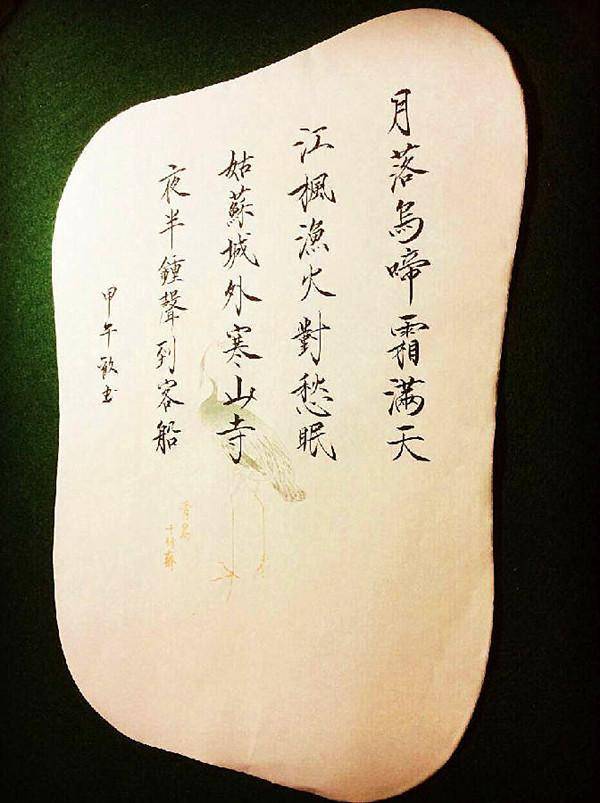 月落烏啼霜滿天
江楓漁火對愁眠
姑蘇城外寒山寺
夜半鍾聲到客船
甲午 書
十竹齋